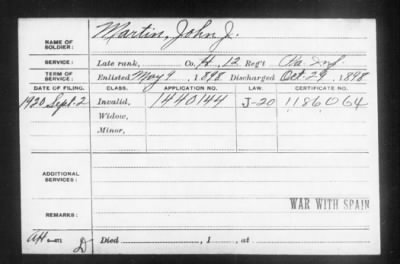 NAME OF SOLDIER: Martin, John J.
SERVICE: Late rank, Co. H, 12 Reg't Pa. Inf.
TERM OF SERVICE: Enlisted May 9, 1898 Discharged Oct. 29, 1898
DATE OF FILING. CLASS. APPLICATION NO. LAW. CERTIFICATE NO.
1920 Sept. 2 Invalid, 1440144 J-20 1186064
Widow,
Minor,
ADDITIONAL SERVICES:
WAR WITH SPAIN
REMARKS:
Died , 1 , at